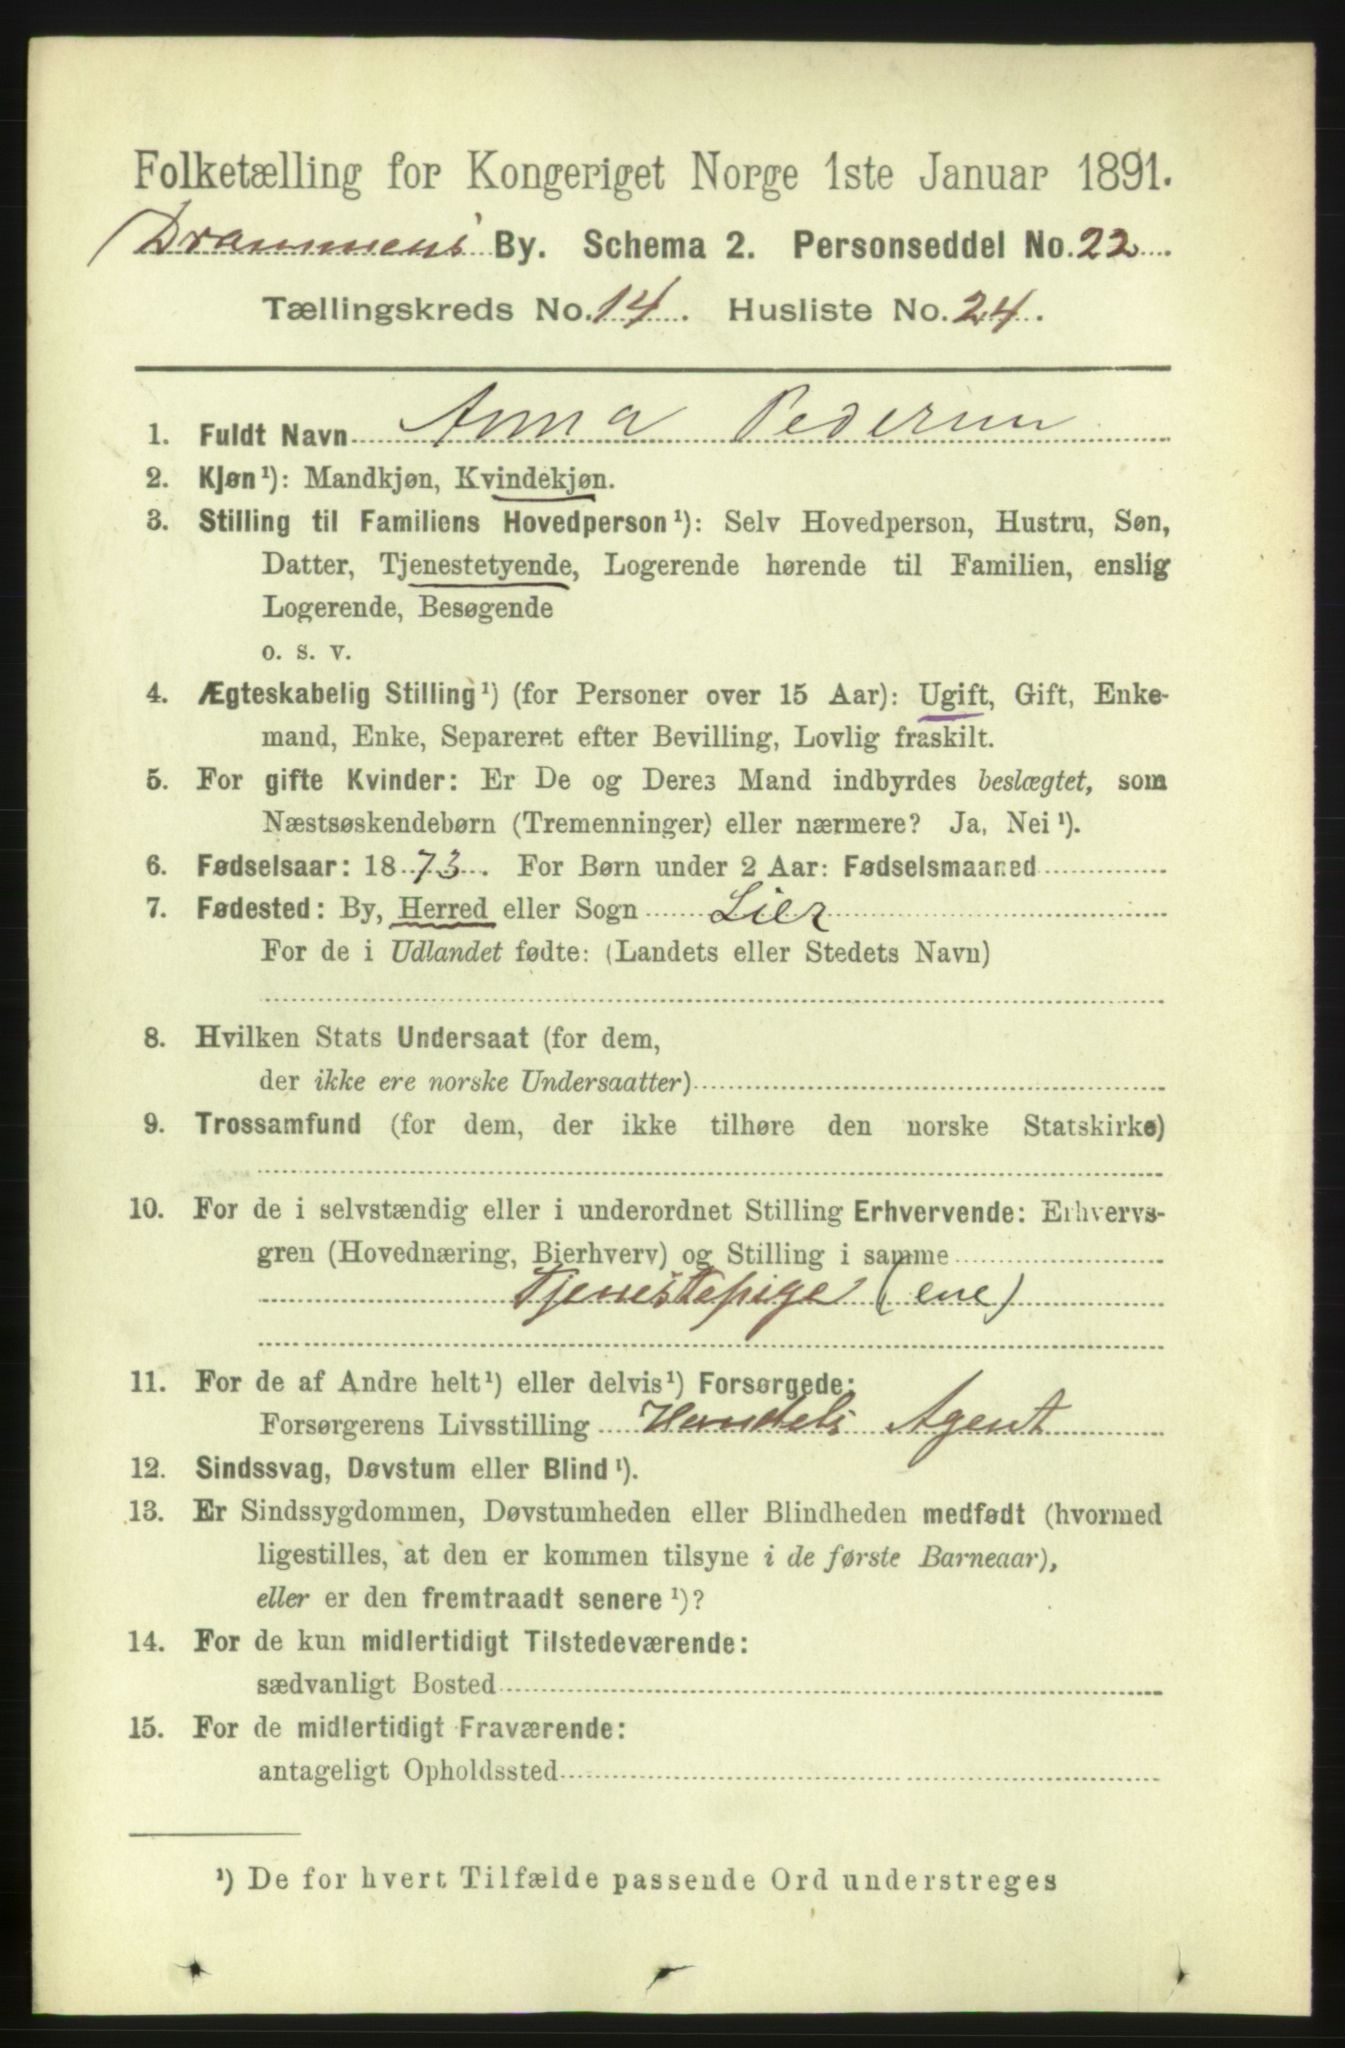 Folketælling for Kongeriget Norge 1ste Januar 1891.
Drammens By. Schema 2. Personseddel No. 22
Tællingskreds No. 14. Husliste No. 24.
1. Fuldt Navn Anna Pedersen
2. Kjøn ¹): Mandkjøn, Kvindekjøn.
3. Stilling til Familiens Hovedperson ¹): Selv Hovedperson, Hustru, Søn,
Datter, Tjenestetyende, Logerende hørende til Familien, enslig
Logerende, Besøgende
o. s. v.
4. Ægteskabelig Stilling ¹) (for Personer over 15 Aar): Ugift, Gift, Enke-
mand, Enke, Separeret efter Bevilling, Lovlig fraskilt.
5. For gifte Kvinder: Er De og Deres Mand indbyrdes beslægtet, som
Næstsøskendebørn (Tremenninger) eller nærmere? Ja, Nei ¹).
6. Fødselsaar: 1873. For Børn under 2 Aar: Fødselsmaaned
7. Fødested: By, Herred eller Sogn Lier
For de i Udlandet fødte: (Landets eller Stedets Navn)
8. Hvilken Stats Undersaat (for dem,
der ikke ere norske Undersaatter)
9. Trossamfund (for dem, der ikke tilhøre den norske Statskirke)
10. For de i selvstændig eller i underordnet Stilling Erhvervende: Erhvervs-
gren (Hovednæring, Bierhverv) og Stilling i samme
Tjenestepige (ene)
11. For de af Andre helt ¹) eller delvis ¹) Forsørgede:
Forsørgerens Livsstilling Handels Agent
12. Sindssvag, Døvstum eller Blind ¹).
13. Er Sindssygdommen, Døvstumheden eller Blindheden medfødt (hvormed
ligestilles, at den er kommen tilsyne i de første Barneaar),
eller er den fremtraadt senere ¹)?
14. For de kun midlertidigt Tilstedeværende:
sædvanligt Bosted
15. For de midlertidigt Fraværende:
antageligt Opholdssted
¹) De for hvert Tilfælde passende Ord understreges